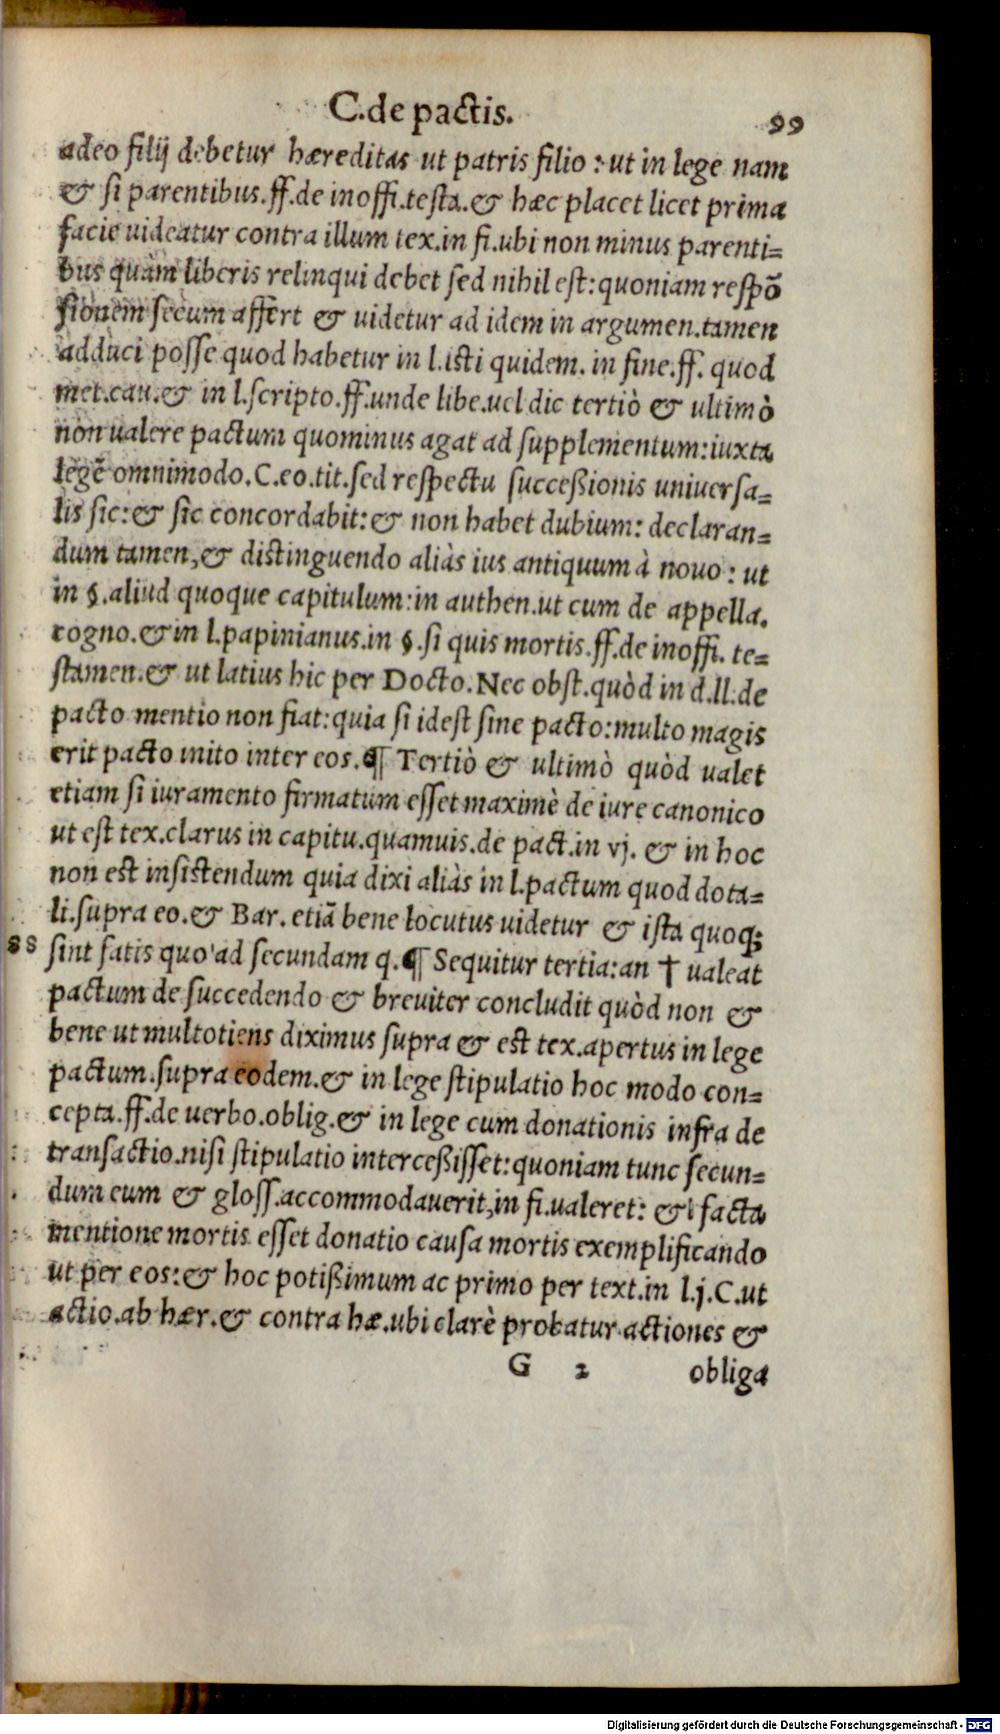 C.de pactis. 99
adeo filij debetur hæreditas ut patris filio : ut in lege nam
& si parentibus.ff.de inoffi.testa.& hæc placet licet prima
facie uideatur contra illum tex.in fi.ubi non minus parenti=
bus quàm liberis relinqui debet sed nihil est:quoniam respõ
sionem secum affert & uidetur ad idem in argumen.tamen
adduci posse quod habetur in l.isti quidem. in fine.ff. quod
met.cau.& in l.scripto.ff.unde libe.uel dic tertiò & ultimò
non ualere pactum quominus agat ad supplementum:iuxta
legẽ omnimodo.C.eo.tit.sed respectu successionis uniuersa=
lis sic:& sic concordabit:& non habet dubium: declaran=
dum tamen,& distinguendo aliàs ius antiquum à nouo : ut
in §.aliud quoque capitulum:in authen.ut cum de appella.
cogno.& in l.papinianus.in §.si quis mortis.ff.de inoffi. te=
stamen.& ut latius hic per Docto.Nec obst.quòd in d.ll.de
pacto mentio non fiat:quia si id est sine pacto:multo magis
erit pacto inito inter eos.¶ Tertiò & ultimò quòd ualet
etiam si iuramento firmatum esset maximè de iure canonico
ut est tex.clarus in capitu.quamuis.de pact.in vj. & in hoc
non est insistendum quia dixi aliàs in l.pactum quod dota=
li.supra eo.& Bar. etiã bene locutus uidetur & ista quoq;
88 sint satis quo'ad secundam q.¶ Sequitur tertia:an † ualeat
pactum de succedendo & breuiter concludit quòd non &
bene ut multotiens diximus supra & est tex.apertus in lege
pactum.supra eodem.& in lege stipulatio hoc modo con=
cepta.ff.de uerbo.oblig.& in lege cum donationis infra de
transactio.nisi stipulatio intercessisset:quoniam tunc secun=
dum eum & gloss.accommodauerit,in fi.ualeret: & si facta
mentione mortis esset donatio causa mortis exemplificando
ut per eos:& hoc potissimum ac primo per text.in l.j.C.ut
actio.ab hær.& contra hæ.ubi clarè probatur actiones &
G 2 obliga
Digitalisierung gefördert durch die Deutsche Forschungsgemeinschaft - DFG